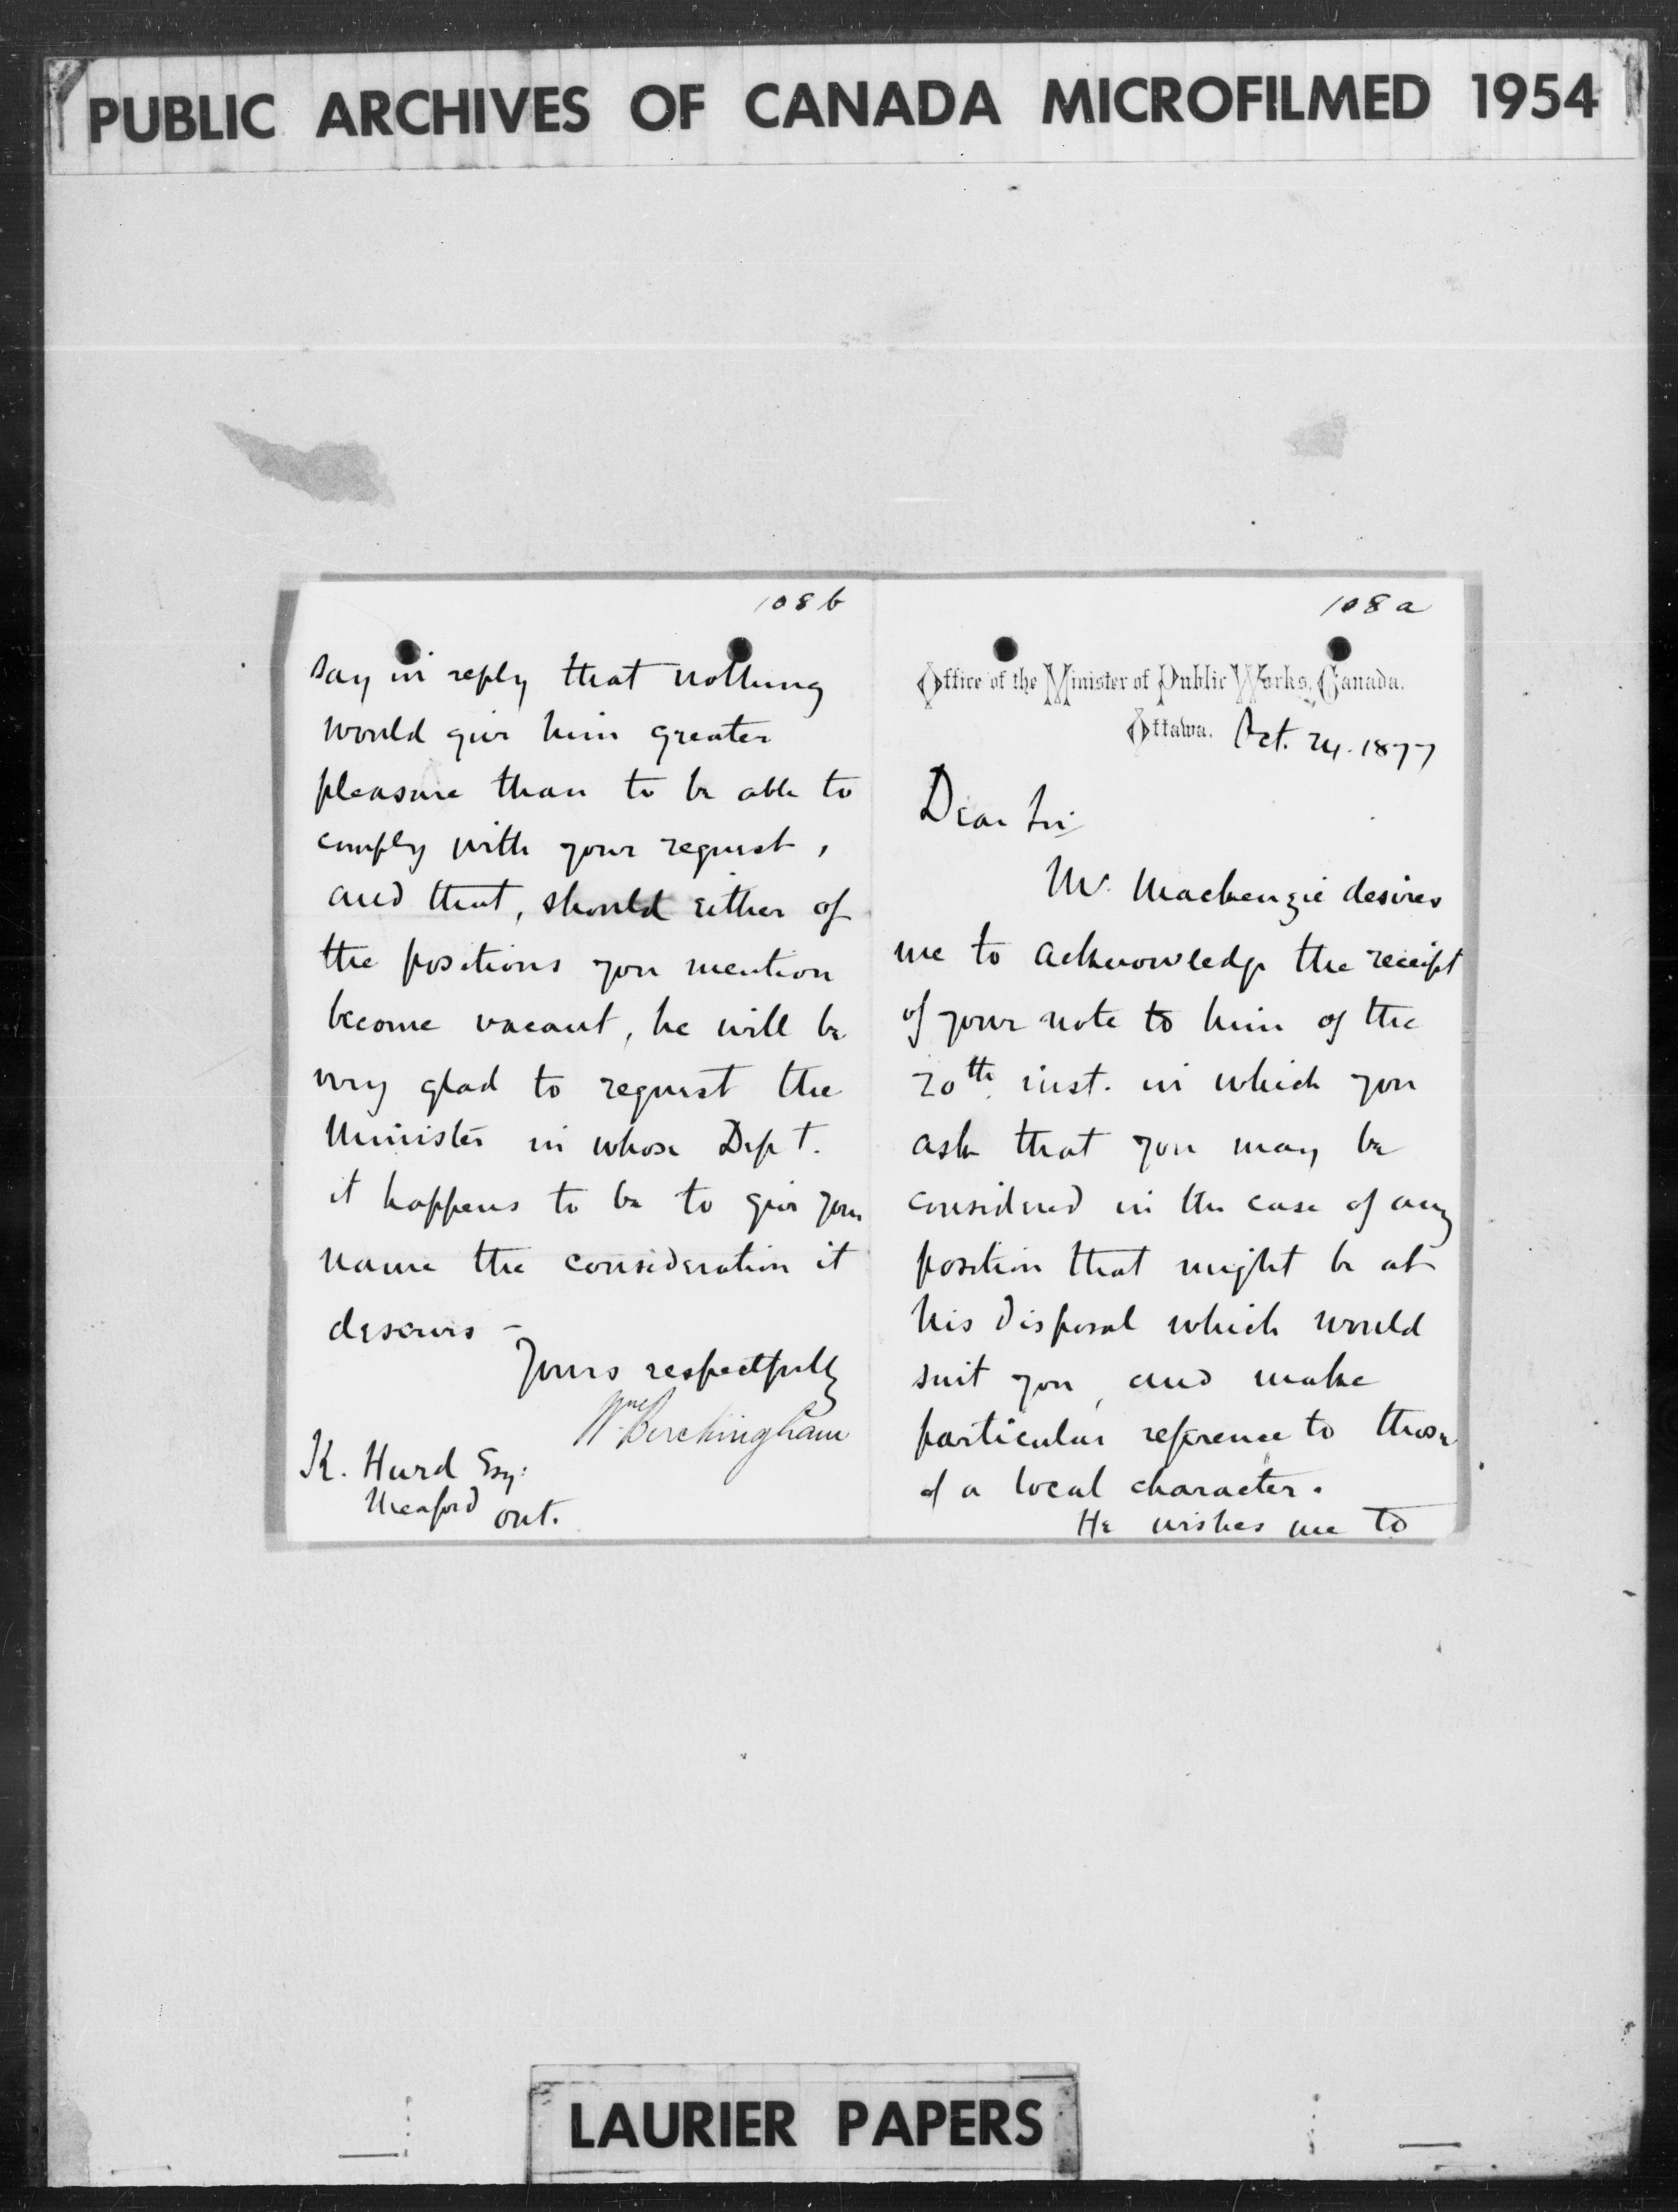 PUBLIC ARCHIVES OF CANADA MICROFILMED 1954
108 a
Office of the Minister of Public Works, Canada.
Ottawa. Oct. 24. 1877
Dear Sir
Mr. Mackenzie desires
me to acknowledge the receipt
of your note to him of the
20th inst. in which you
ask that you may be
considered in the case of any
position that might be at
his disposal which would
suit you, and make
particular reference to those
of a local character.
He wishes me to
108 b
say in reply that nothing
would give him greater
pleasure than to be able to
comply with your request,
and that, should either of
the positions you mention
become vacant, he will be
very glad to request the
Minister in whose Dept.
it happens to be to give your
name the consideration it
deserves -
Yours respectfully
Wm Buckingham
K. Hurd Esq:
Meaford Ont.
LAURIER PAPERS